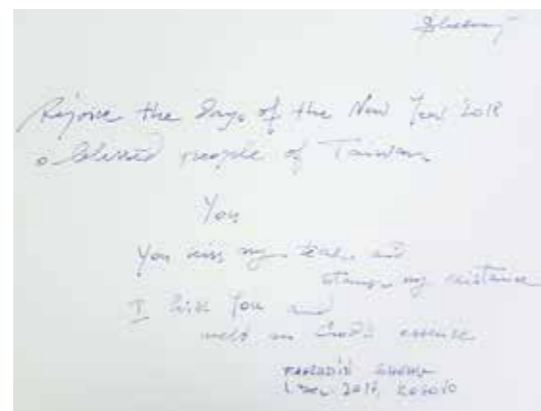 Rejoice the Days of the New Year 2018
o blessed people of Taiwan
You
You kiss my tears and
my existance
I kiss You and
melt in God's essence
FAHREDIN SHEHU
1 Dec. 2017, KOSOVO